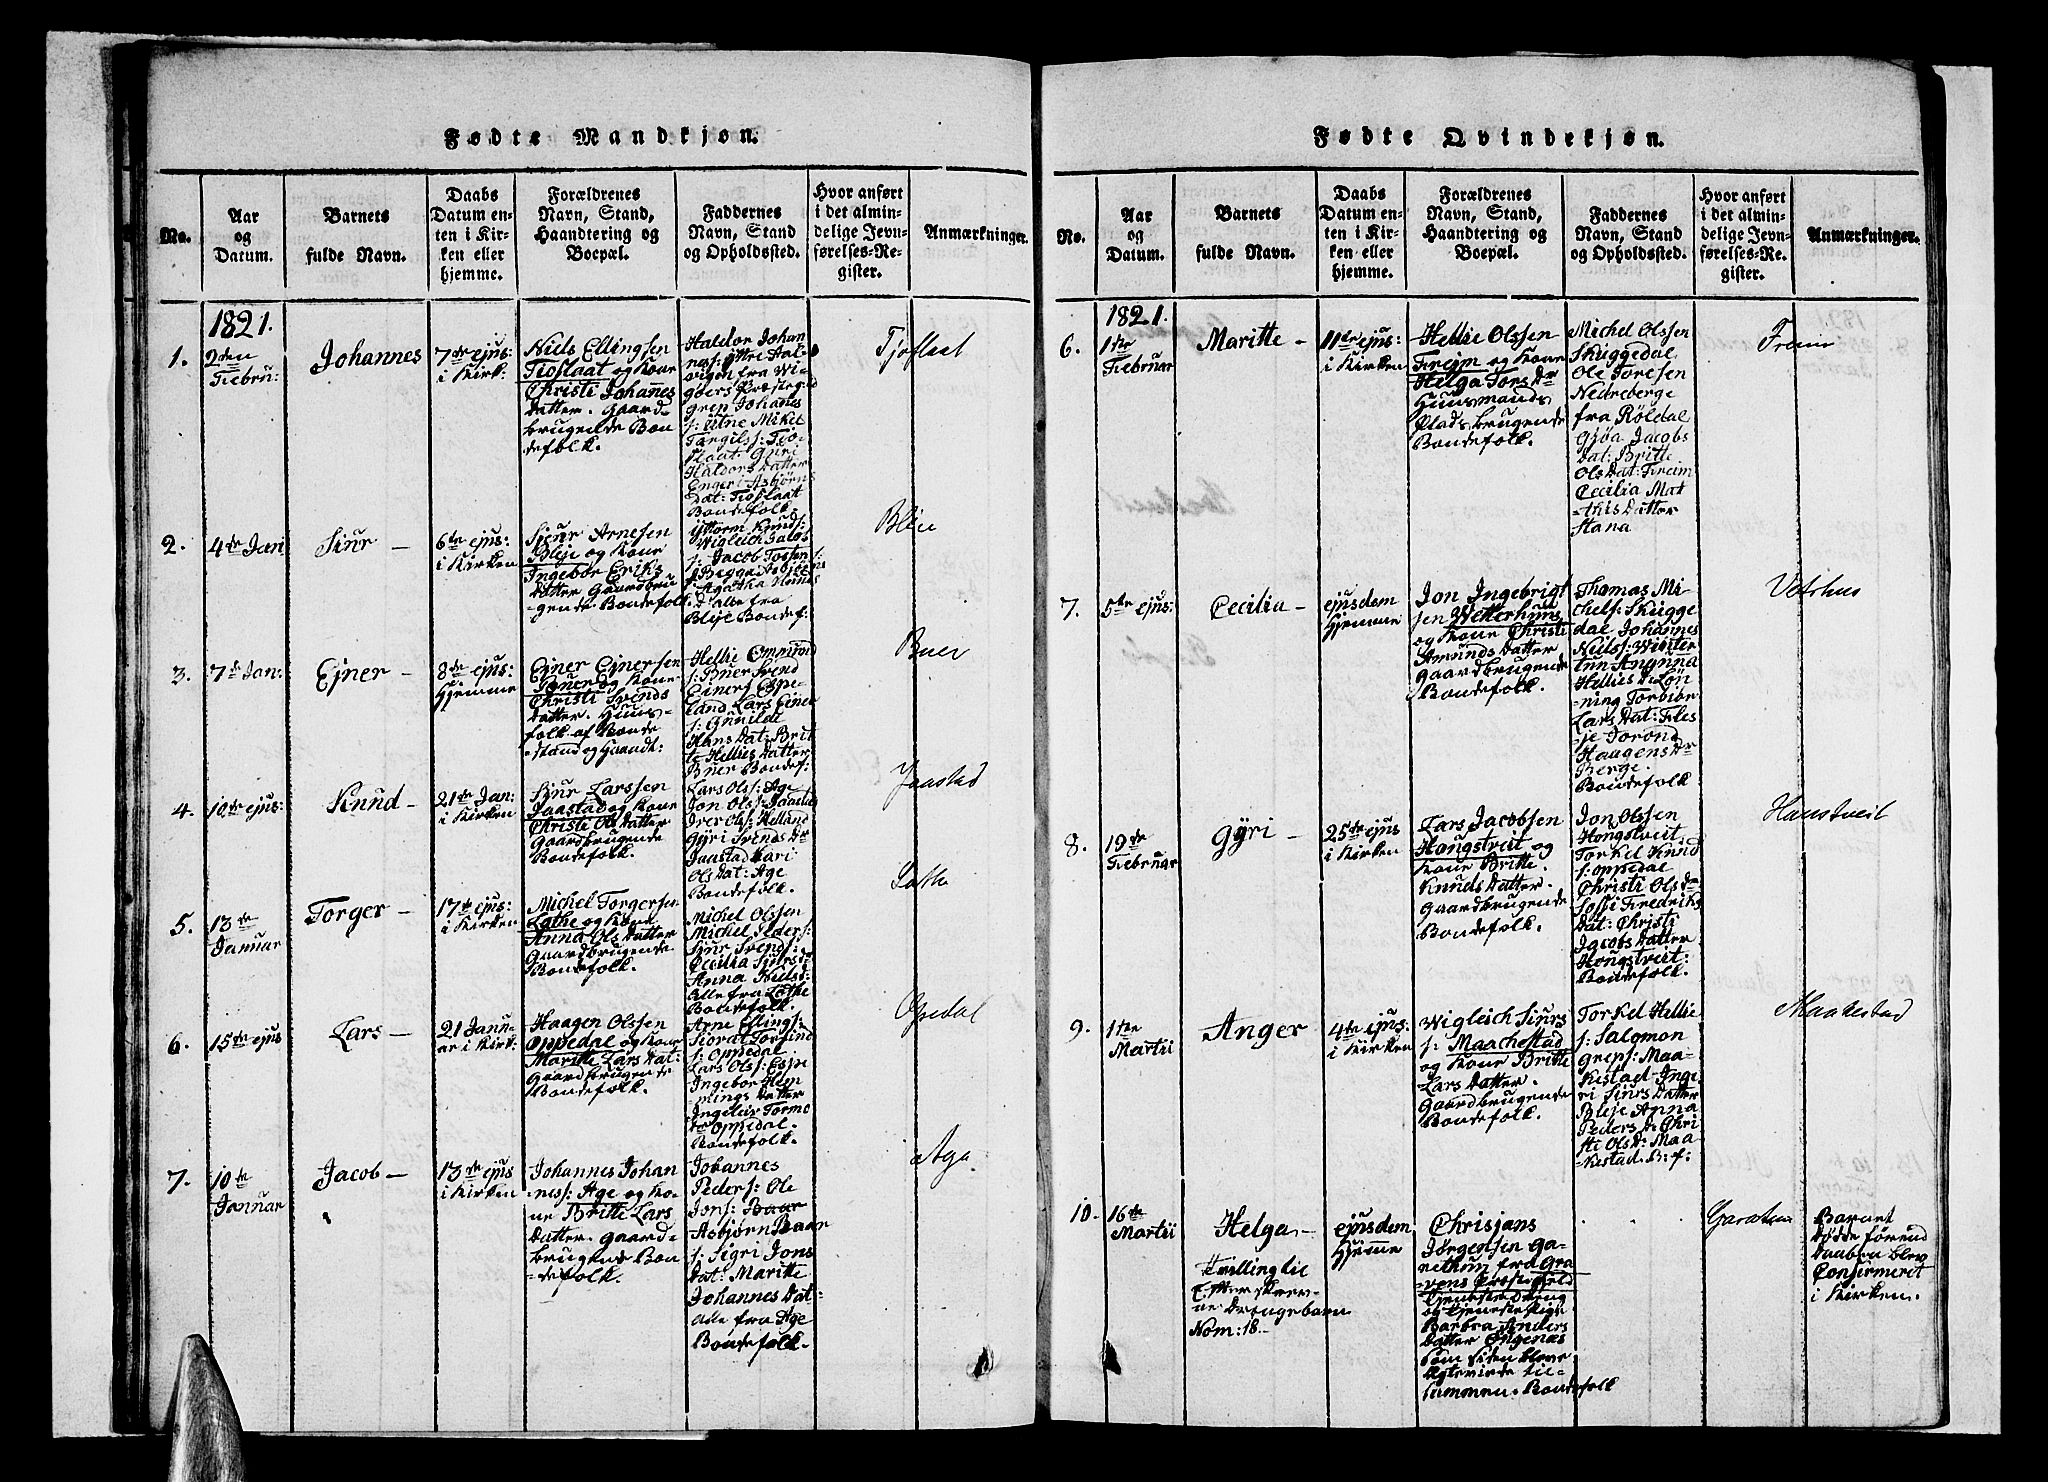 Fødte Mandkjøn.
No.
Aar
og
Datum.
Barnets
fulde Navn.
Daabs
Datum en-
ten i Kir-
ken eller
hjemme.
Forældrenes
Navn, Stand,
Haandtering og
Boepæl.
Faddernes
Navn, Stand
og Opholdssted.
Hvor anført
i det almin-
delige Jevn-
førelses-Re-
gister.
Anmærkninger.
1821.
1.
2den
Febru:
Johannes
7de ejus:
i Kirk:
Niels Ellingsen
Tioflaat og Kone
Christi Johannes
Datter. Gaard-
brugende Bon
defolk.
Haldor Johan
nes: Yttre Aal
vigen fra Wi-
göers Præstegield
Grep Johannes
s: Utne Mikel
Targils: Tio-
flaat Guri
Haldors Datter
Engeri Asbjørns
Dat: Tioflaat
Bondefolk.
Tjoflaat
2.
4de Jan:
Siur –
6te ejus:
i Kirken
Sjur Arnesen
Bleje og Kone
Ingebor Eriks
Datter Gaardbru
gende Bondefolk.
Guttorm Knuds:
Wigleich Jacob
s: Jacob Tossen
Agatha
D: alle fra
Bleje Bondef:
Bleie
3.
7de Jan:
Ejner –
8de ejus:
Hjemme
Ejner Ejnersen
Buer og Kone
Christi Svends
Datter. Huus-
folk af Bonde
-stand og Haandt:
Hellie Ommund
s: Buer Svend
Einers: Espe
land Lars Ejner
s: Gunilde
Hans Dat: Brit
te Hellies Datter
Buer Bondef:
Buer
4.
10de ejus:
Knud –
21de Jan:
i Kirken
Sjur Larssen
Jaastad og Kone
Christi Ols Datter
Gaardbrugende
Bondefolk.
Lars Ols: Age
Jon Ols: Jaastad
Iver Ols: Helland
Gyri Svends Dr
Jaastad Kari
Ols Dat: Age
Bondefolk.
Jaastad
5.
13de
Januar
Torger –
17de ejus:
i Kirken
Michel Torgersen
Lothe og Kone
Anna Ols Datter
Gaardbrugende
Bondefolk.
Michel Olssen
Michel Elders:
Sjur Svends:
Cecilia Siurs Dr
Anna Niels D:
Alle fra Lothe
Bondefolk.
Lothe
6.
15de ejus
Lars –
21 Janu-
ar i Kirk:
Haagen Olssen
Oppedal og Kone
Maritte Lars Dat:
Gaardbrugende
Bondefolk.
Arne Ellings:
Siovat Torfind
s: Oppedal
Lars Ols: Espe
Ingebor Hem
mings Datter
Ingeleiv Tormo
Dr Oppedal.
Bondefolk.
Opedal
7.
10de
Januar
Jacob –
13de ejus
i Kirken
Johannes Johan
-nes: Age og Ko-
ne Britte Lars
Datter. Gaard-
brugens Bon
-defolk.
Johannes
Peders: Ole
Jons: Baar
Asbjørn Baar
s: Sigri Jons
Dat: Maritte
Johannes Dat:
Alle fra Age
Bondefolk.
Aga.
Fødte Qvindekjøn.
No.
Aar
og
Datum.
Barnets
fulde Navn.
Daabs
Datum en-
ten i Kir-
ken eller
hjemme.
Forældrenes
Navn, Stand,
Haandtering og
Boepæl.
Faddernes
Navn, Stand
og Opholdssted.
Hvor anført
i det almin-
delige Jevn-
førelses-Re-
gister.
Anmærkninger.
1821.
6.
1ste
Februar
Maritte –
11te ejus:
i Kirken
Hellie Olssen
Freim og Kone
Helga Tors Dr
Huusmands
Plads brugende
Bondefolk.
Michel Olssen
Skuggedal
Ole Toresen
Nedreberge
fra Röldal
Gjøa Jacobs
Dat: Britte
Ols Dat: Freim
Cecilia Mat
-this Datter
Hana
7.
5te ejus:
Cecilia –
ejusdem
Hjemme
Jon Ingebrigt
sen Wetterhuus
og Kone Christi
Amunds Datter
Gaardbrugende
Bondefolk.
Thomas Mi
chels: Skugge
dal Johannes
Niels: Winter
tun
Hellies D: Løn
-ning Torbiør
Lars Dat: Fles
je Jorond
Haagens Dr
Berge.
Bondefolk.
Vetrhus
8.
19de
Februar
Gÿri –
25de ejus
i Kirken
Lars Jacobsen
Hougstveit og
Kone Britte
Knuds Datter.
Gaardbrugende
Bondefolk.
Jon Olssen
Hongstveit
Torkel Knud
s: Oppedal
Christi Ols Dr
Sossi Fredriks
Dat: Christi
Jacobs Datter
Hougstveit:
Bondefolk.
Haustveit
9.
1ste
Martii
Anger
4de ejus:
i Kirken
Wigleich Siurs
s: Maachestad
og Kone Britte
Lars Datter.
Gaardbrugende
Bondefolk.
Torkel Hellie
s: Salomon
Greps: Maa-
kestad Inge
ri Siurs Datter
Bleje Anna
Peders D: Chri
sti Ols D: Maa
-kestad. B: f:
Maakestad
10.
16de
Martii
Helga –
Tvilling til
Efterskrev-
ne Drengebarn
Nom: 18.
ejusdem
Hjemme
Chrisjans
Jörgensen Ga-
rethun fra Gra
-vens Præstegield
Tjenestedreng
og tjenestepige
Barbra Anders
Datter
som siden bleve
Ægteviede til-
sammen. Bondefolk
Garatun
Barnet
Døde førend
Daaben blev
Confirmeret
i Kirken.